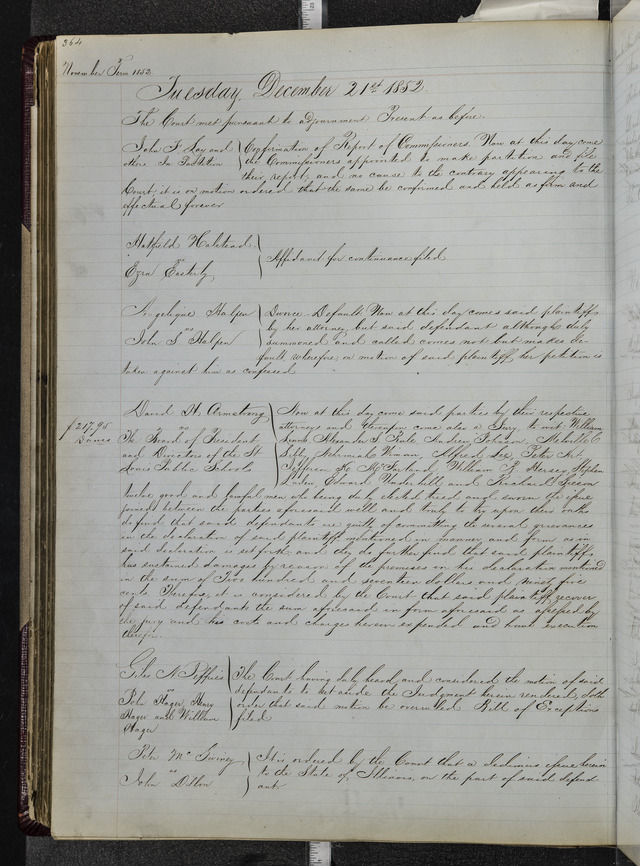 364
November Term 1852
Tuesday, December 21st 1852
The Court met pursuant to adjournment Present as before.
John F. Koy and
others In Partition
Confirmation of Report of Commissioners. Now at this day come
the Commissioners appointed to make partition and file
their report, and no cause to the contrary appearing to the
Court, it is on motion ordered that the same be confirmed and held as firm and
effectual forever
Hatfield Halstead
vs
Ezra Easterly
Affidavit for continuance filed
Angelique Halpin
vs
John S. Halpin
Divorce - Default Now at this day comes said plaintiff
by her attorney, but said defendant although duly
summoned and called comes not but makes de-
fault wherefore, on motion of said plaintiff, her petition is
taken against him as confessed
$217.95
Damages
David H. Armstrong
vs
The Board of President
and Directors of the St
Louis Public Schools
Now at this day come said parties by their respective
attorneys and thereupon come also a Jury to wit, William
Alexander S. Rule Andrew Johnson,
Alfred Lee, Peter
Jefferson K. McFarland, William H. Hersey, Stephen
Edward Underhill, and Richard
twelve good and lawful men who being duly elected tried and sworn the issue
joined between the parties aforesaid well and truly to try upon their oath
do find that said defendants are guilty of committing the several grievances
in the declaration of said plaintiff mentioned in manner and form as in
said declaration is set forth, and they do further find that said plaintiff
has sustained damages by reason of the premises in her declaration mentioned
in the sum of Two hundred and seventeen dollars and ninety five
cents Therefore, it is considered by the Court that said plaintiff recover
of said defendants the sum aforesaid in form aforesaid as assessed by
the jury and his costs and charges herein expended and have execution
therefor.
Giles N.
vs
Hager, Henry
Hager and William
Hager
The Court having duly heard and considered the motion of said
defendants to set aside the Judgment herein rendered, doth
order that said motion be overruled Bill of Exceptions
filed
Peter McSwiney
vs
John Dillon
It is ordered by the Court that a Dedimus issue herein
to the State of Illinois, on the part of said defend
ant.